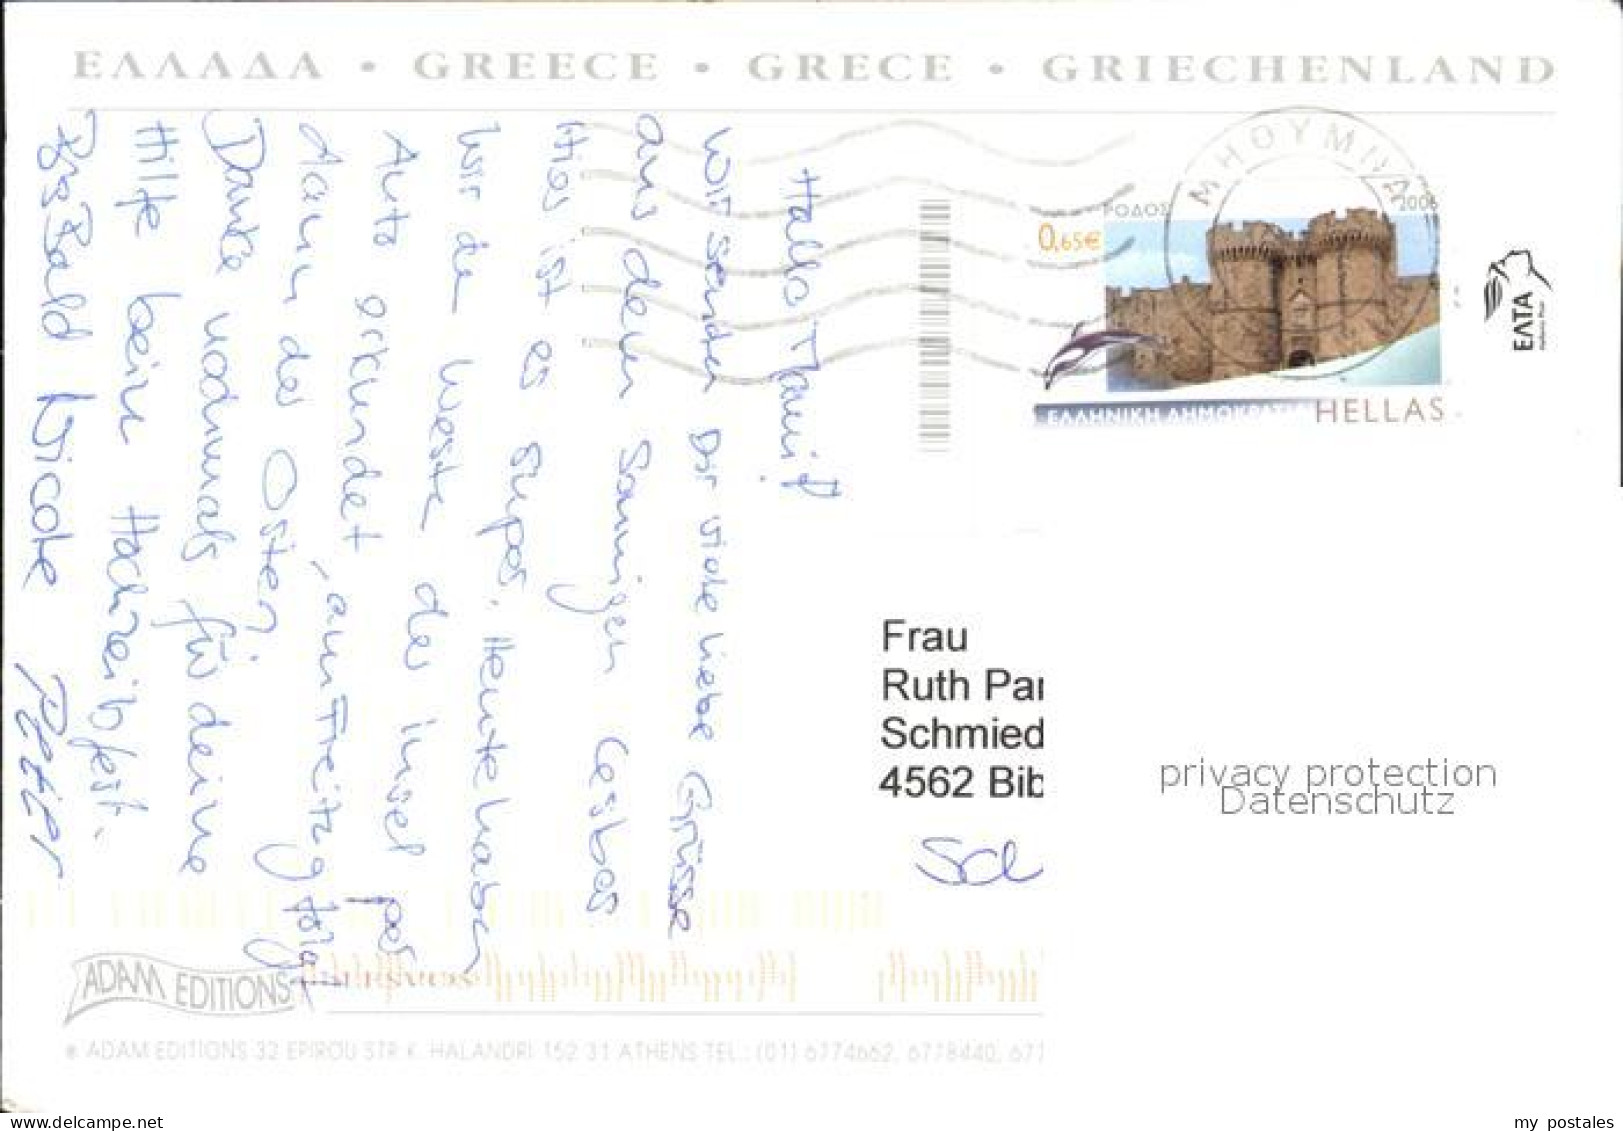 ΕΛΛΑΔΑ • GREECE • GRECE • GRIECHENLAND
ΜΗΘΥΜΝΑ
ΡΟΔΟΣ
2006
0,65€
ΕΛΛΗΝΙΚΗ ΔΗΜΟΚΡΑΤΙΑ HELLAS
ΕΛΤΑ
Hallo Mami!
Wir senden Dir viele liebe Grüsse
aus dem sonnigen Lesbos
Hier ist es super. Heute haben
Wir de Weste der insel per
Auto erkundet, am Freitag folgt
dann der Osten.
Danke nochmals für deine
Hilfe beim Hochzeitsfest.
Bis Bald Nicole Peter
Frau
Ruth Par
Schmied
4562 Bib
Sch
privacy protection
Datenschutz
ADAM EDITIONS
® ADAM EDITIONS 32 EPIROU STR K. HALANDRI 152 31 ATHENS TEL.: (01) 6774662, 6778440, 677
delcampe.net
my_postales